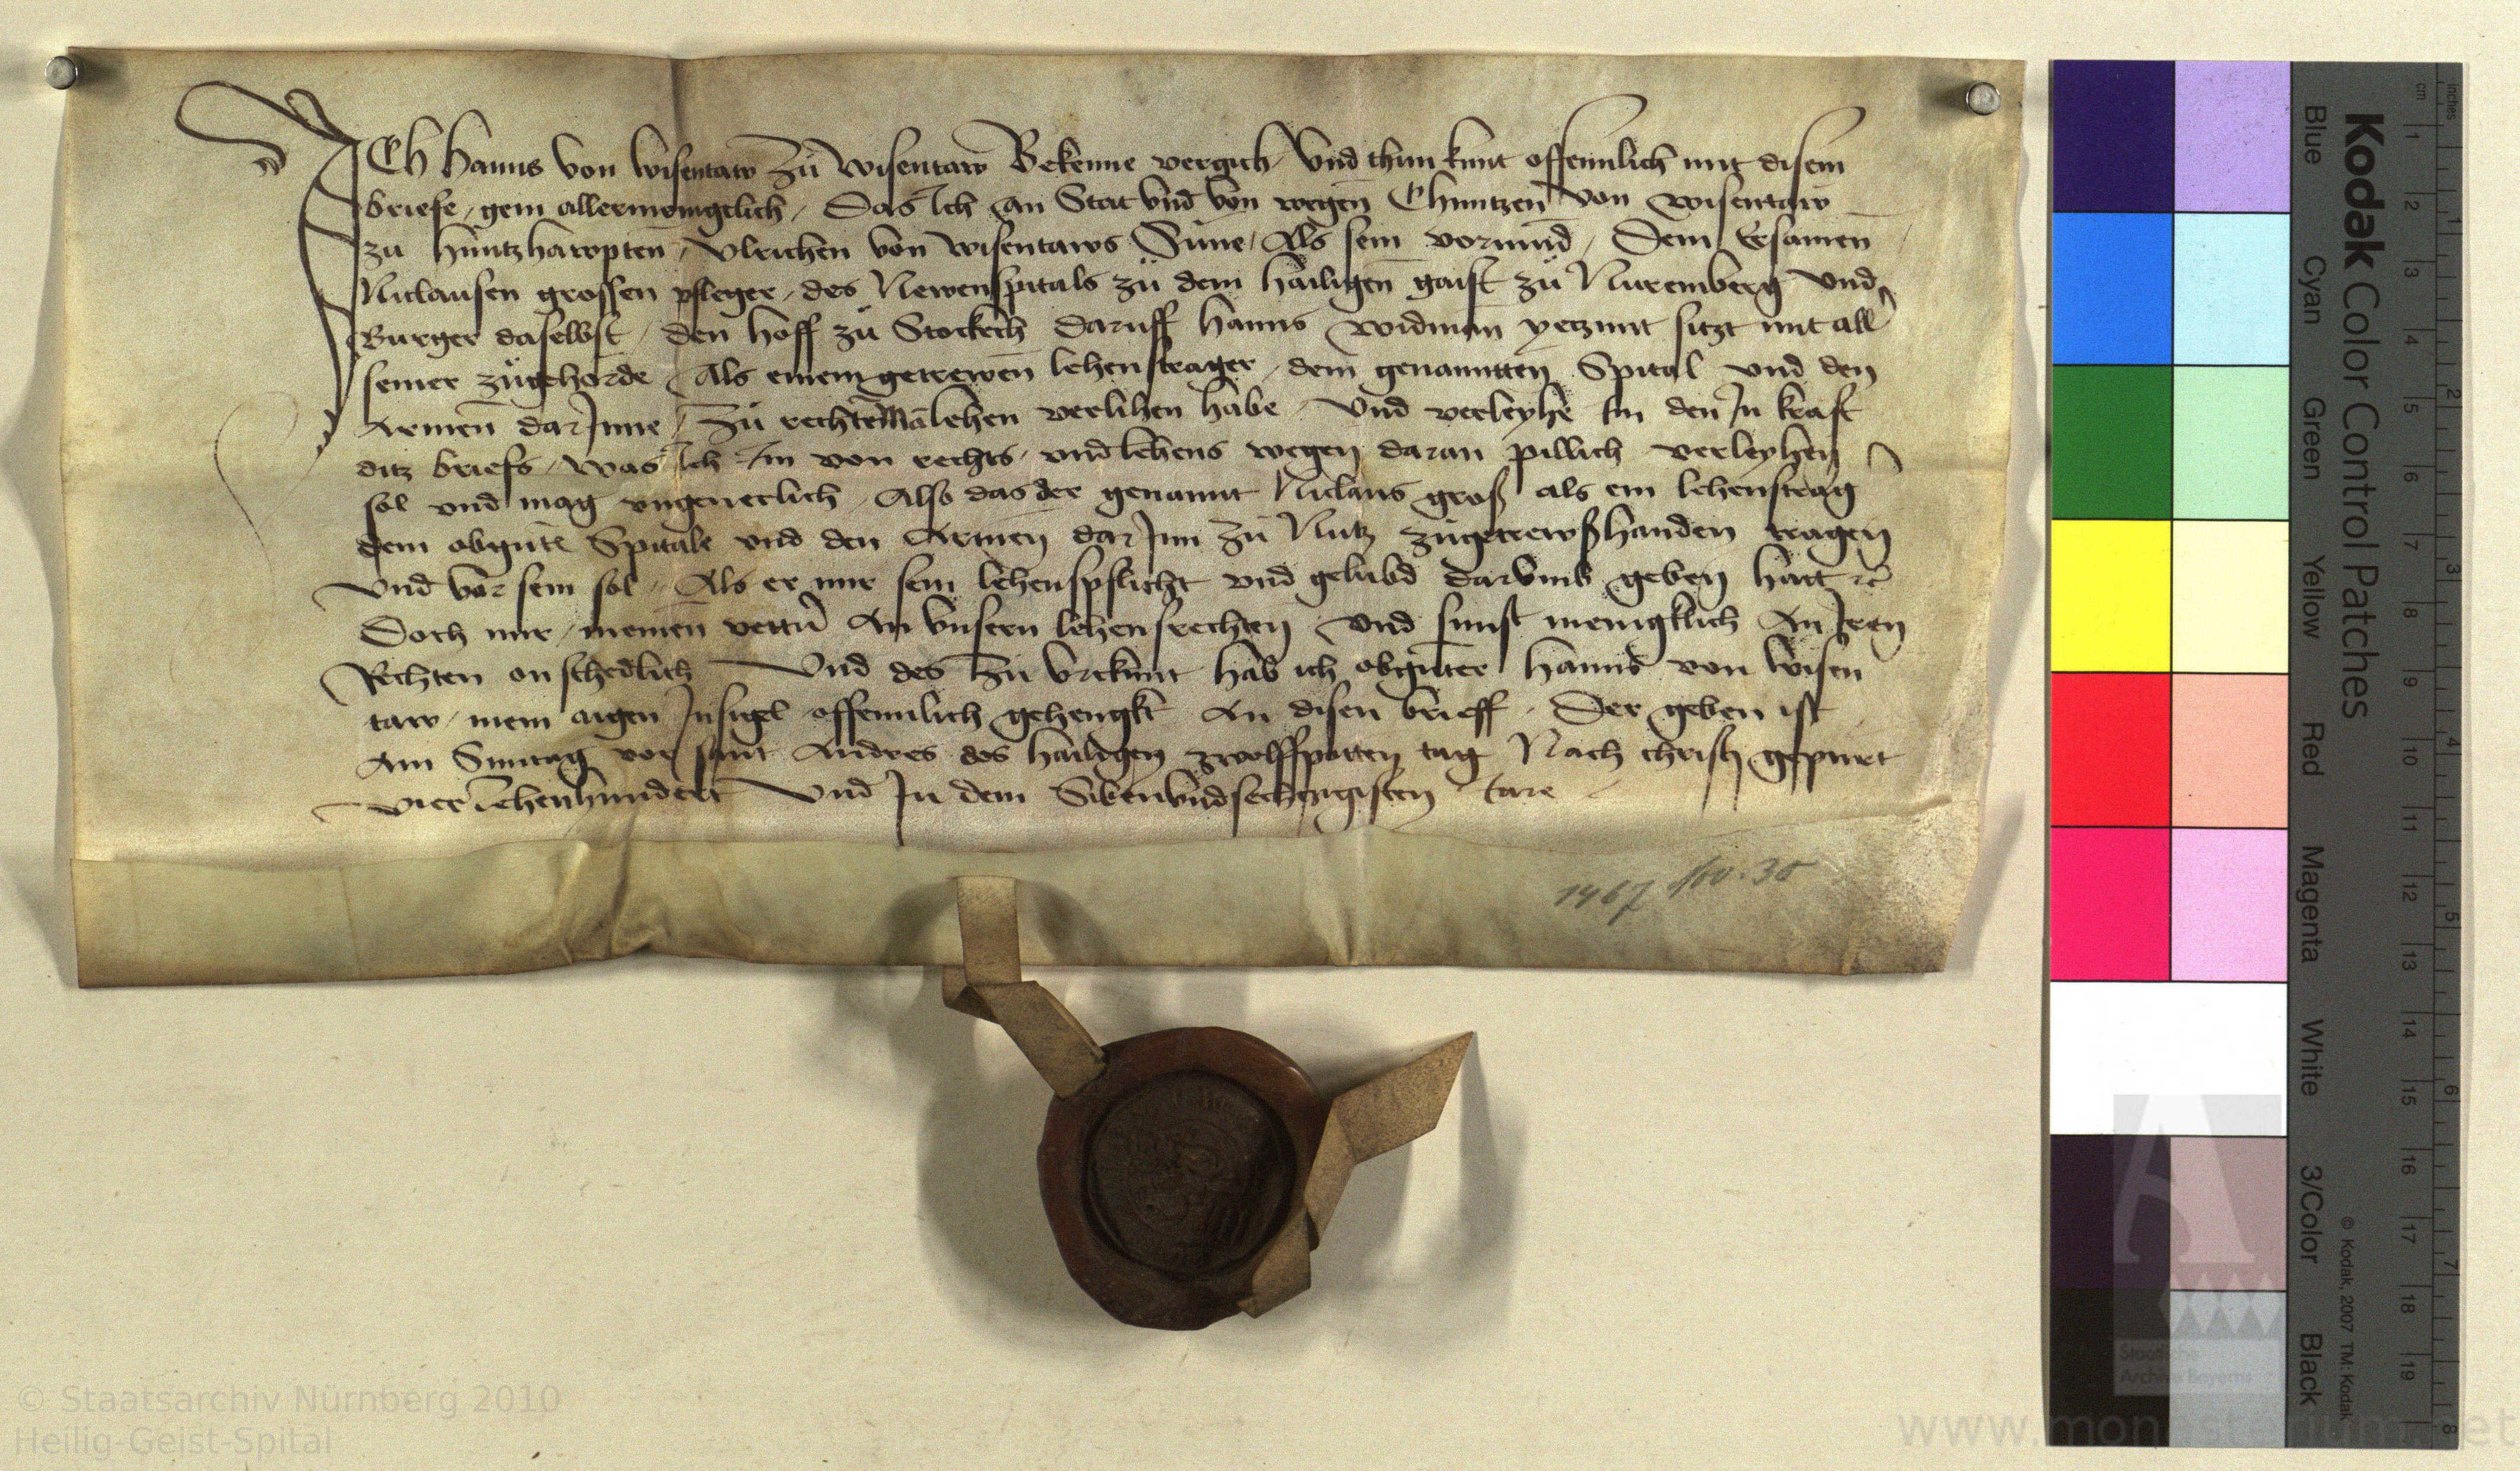 ICh Hanns von Wisentaw zu Wisentaw Bekenne vergich Vnd thun kunt offennlich mit disem
briefe, gein allermeingclich, Das Ich an Stat vnd von wegen Chuntzen von Wisentaw
zu Huntzhawpten, Vlrichen von Wisentaws Sune, Als sein vormund, Dem Ersamen
Niclausen grossen pfleger, des Newenspitals zu dem hailigen gaist zu Nuremberg vnd
Burger daselbst, den hoff zu Stockech daruff Hanns Widman yetzunt sitzt mit all
seiner zugehorde, Als einem getrewen lehenstrager, dem genannten Spital vnd den
Armen darJnne, zu rechtem Manlehen verlihen habe, Vnd verleyhe Im den Jn kraft
ditz briefs, was Ich Im von rechts, vnd lehens wegen daran pillich verleyhen
sol vnd mag vngeuerlich, Also das der genannt Niclaus groß als ein lehenstrag
dem obgnten Spitale vnd den Armen darJnn zu Nutz zugetrewßhanden tragen
vnd vor sein sol, Als er mir sein lehenspflicht vnd gelubd darvmb geben hatt rc
Doch mir, meinem vettern An vnsern lehensrechten, Vnd sunst menigklich An Jren
Rechten on schedlich Vnd des zu vrkunt hab ich obgnter Hanns von Wisen
taw, mein aigen Jnsigel offennlich gehengkt An disen brieff, Der geben ist
Am Suntag vor sant Andres des hailigen zwolffpotten tag Nach christi gepurt
vierzehenhundert Vnd Jn dem Sibenvndsechczigisten Iare
1467 Nov. 30
Kodak Color Control Patches
Blue Cyan Green Yellow Red Magenta White 3/Color Black
© Kodak, 2007 TM: Kodak
inches 1 2 3 4 5 6 7 8
cm 1 2 3 4 5 6 7 8 9 10 11 12 13 14 15 16 17 18 19
Staatliche
Archive Bayerns
© Staatsarchiv Nürnberg 2010
Heilig-Geist-Spital
www.monasterium.net